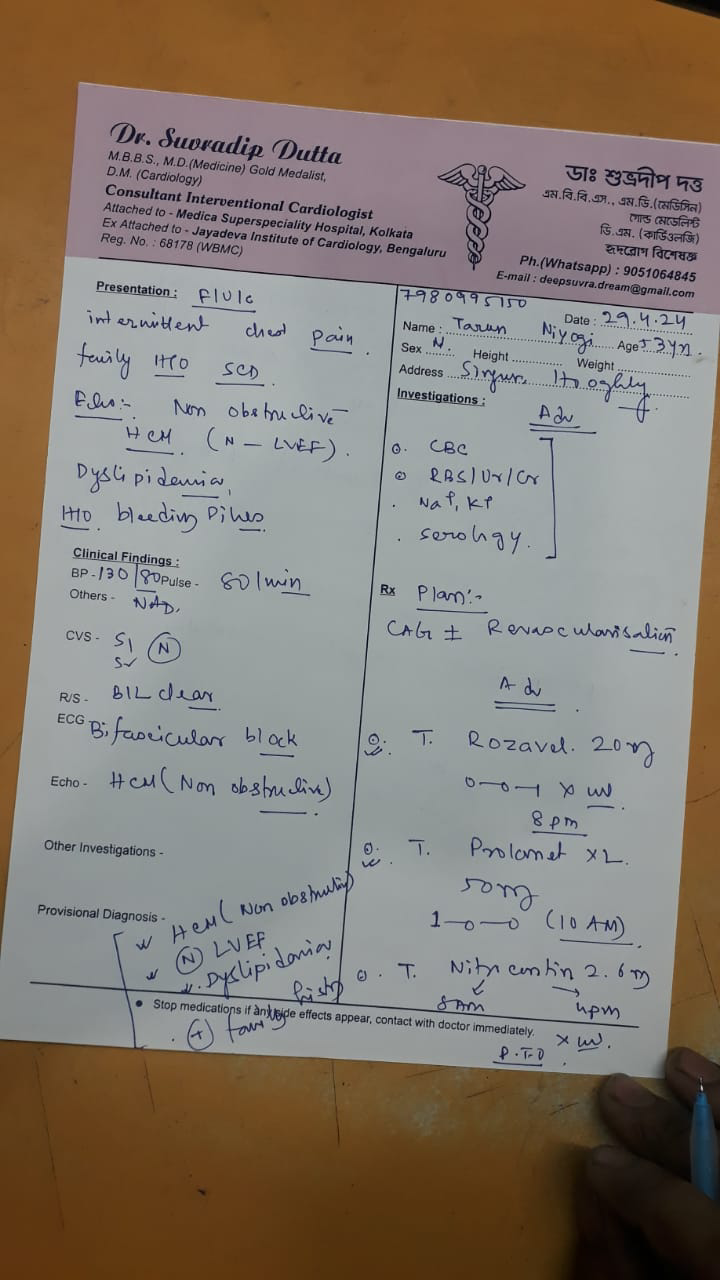 Dr. Suvradip Dutta
M.B.B.S., M.D.(Medicine) Gold Medalist,
D.M. (Cardiology)
Consultant Interventional Cardiologist
Attached to - Medica Superspeciality Hospital, Kolkata
Ex Attached to - Jayadeva Institute of Cardiology, Bengaluru
Reg. No. : 68178 (WBMC)
ডাঃ শুভ্রদীপ দত্ত
এম.বি.বি.এস., এম.ডি.(মেডিসিন)
গোল্ড মেডেলিস্ট
ডি.এম. (কার্ডিওলজি)
হৃদরোগ বিশেষজ্ঞ
Ph.(Whatsapp) : 9051064845
E-mail : deepsuvra.dream@gmail.com
Presentation : F/U/C
intermittent chest pain.
family H/O SCD
Echo:- Non obstructive
HCM (N - LVEF).
Dyslipidemia,
H/O bleeding Piles
Clinical Findings :
BP - 130/80 Pulse - 80/min
Others - NAD.
CVS - S1 N
S2
R/S - B/L clear
ECG Bifascicular block
Echo - HCM (Non obstructive)
Other Investigations -
Provisional Diagnosis -
HCM (Non obstructive)
N LVEF
Dyslipidemia
+ family history
7980995150
Date : 29.4.24
Name : Tarun Niyogi Age 53yrs.
Sex M. Height Weight
Address Singur, Hooghly
Investigations :
Adv
CBC
RBS/Ur/Cr
Na+, K+
Serology.
Rx Plan:-
CAG ± Revascularisation
Adv
T. Rozavel. 20mg
0-0-1 x
8 pm
T. Prolomet XL.
50mg
1-0-0 (10 AM)
T. Nitrocontin 2.6mg
8AM 4pm
x
P.T.O
Stop medications if any side effects appear, contact with doctor immediately.